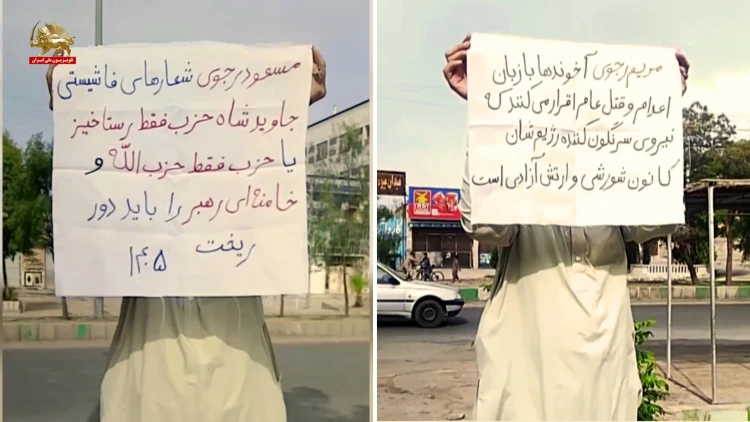 سیمای آزادی
تلویزیون ملی ایران
مسعود رجوی شعارهای فاشیستی
جاوید شاه حزب فقط رستاخیز
یا حزب فقط حزب الله و
خامنه‌ای رهبر را باید دور
ریخت
مریم رجوی آخوندها با زبان
اعدام و قتل عام اقرار می کنند که
نیروی سرنگون کننده رژیم شان
کانون شورشی و ارتش آزادی است